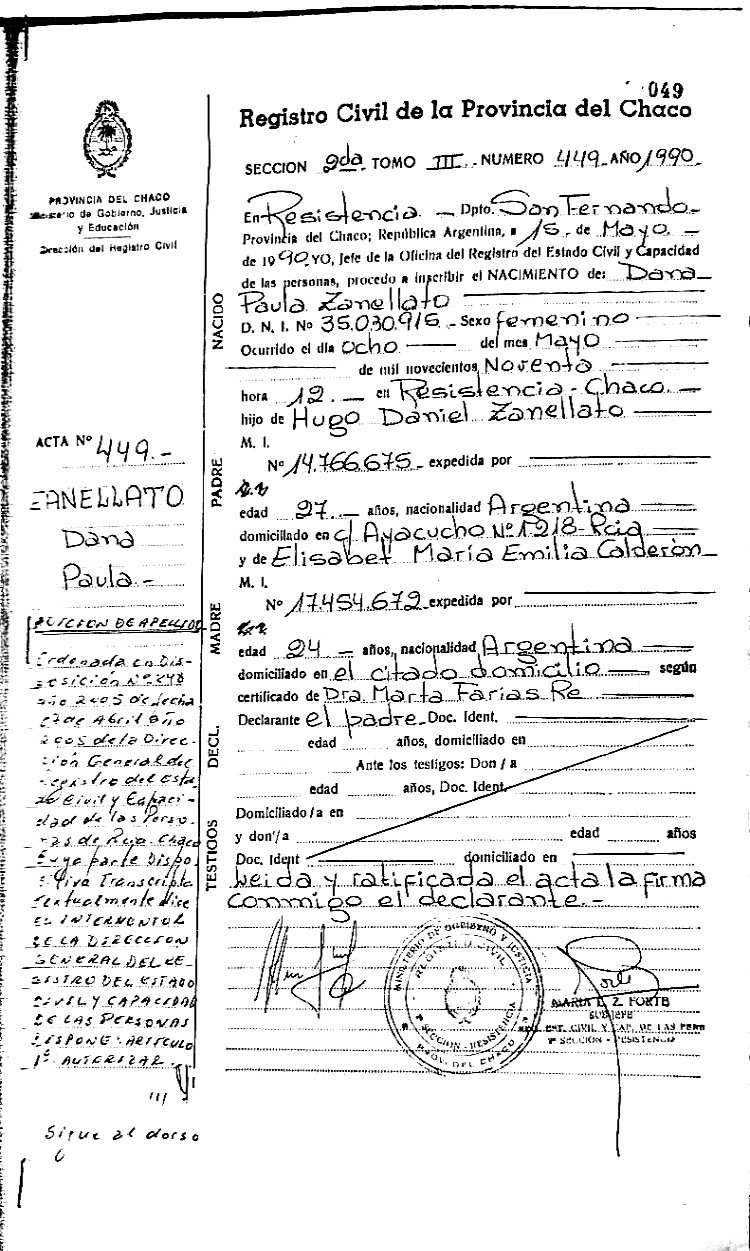 049
Registro Civil de la Provincia del Chaco
SECCION 2da TOMO III NUMERO 449 AÑO 1990
PROVINCIA DEL CHACO
Ministerio de Gobierno, Justicia
y Educación
Dirección del Registro Civil
En Resistencia - Dpto. San Fernando -
Provincia del Chaco; República Argentina, a 15 - de Mayo -
de 1990 YO, Jefe de la Oficina del Registro del Estado Civil y Capacidad
de las personas, procedo a inscribir el NACIMIENTO de: Dana
NACIDO
Paula Zanellato
D. N. I. Nº 35.030.915 - Sexo femenino
Ocurrido el día ocho del mes Mayo
de mil novecientos Noventa
hora 12. - en Resistencia - Chaco. -
hijo de Hugo Daniel Zanellato
PADRE
M. I.
Nº 14.766.675 - expedida por
edad 27. - años, nacionalidad Argentina
domiciliado en c/ Ayacucho Nº 1218 - Rcia
y de Elisabet María Emilia Calderón -
MADRE
M. I.
Nº 17.454.672 expedida por
edad 24 - años, nacionalidad Argentina
domiciliado en el citado domicilio - según
certificado de Dra. Marta Farias Re
DECL.
Declarante el padre - Doc. Ident.
edad años, domiciliado en
TESTIGOS
Ante los testigos: Don / a
edad años, Doc. Ident.
Domiciliado / a en
y don'/a edad años
Doc. Ident domiciliado en
Leida y ratificada el acta la firma
conmigo el declarante. -
MINISTERIO DE GOBIERNO Y JUSTICIA
REGISTRO CIVIL
SECCION - RESISTENCIA
PROV. DEL CHACO
MARIA L. Z. FORTE
SUBJEFE
EST. CIVIL Y CAP. DE LAS PERS
SECCION - RESISTENCIA
ACTA Nº 449. -
ZANELLATO
Dana
Paula -
ADICION DE APELLIDO
Ordenada en Dis-
posición Nº 248
año 2005 de fecha
de Abril año
2005 de la Direc-
ción General del
Registro del Esta
do Civil y Capaci-
dad de las Perso-
nas de Rcia. Chaco
Cuya parte Dispo
sitiva Transcripta
textualmente dice
EL INTERVENTOR
DE LA DIRECCION
GENERAL DEL RE-
GISTRO DEL ESTADO
CIVIL Y CAPACIDAD
DE LAS PERSONAS
DISPONE: ARTICULO
1º AUTORIZAR
///
Sigue al dorso